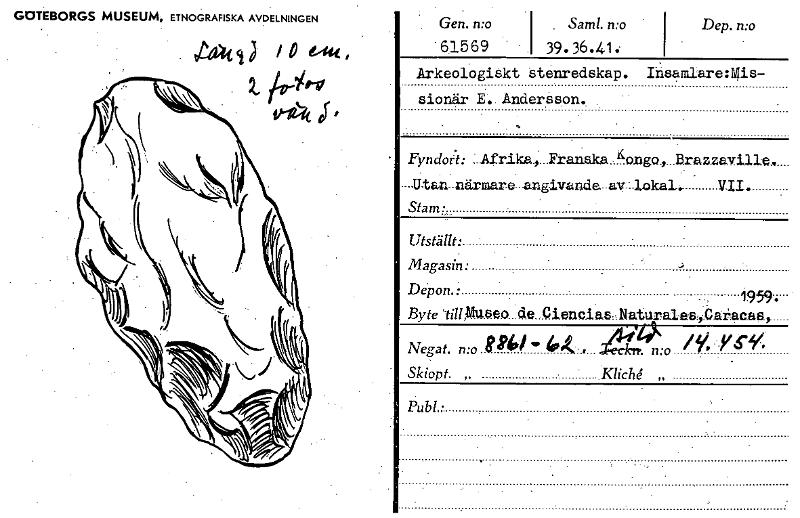 GÖTEBORGS MUSEUM, ETNOGRAFISKA AVDELNINGEN
Längd 10 cm.
2 fotos
vänd.
Gen. n:o Saml. n:o Dep. n:o
61569 39.36.41.
Arkeologiskt stenredskap. Insamlare:Mis-
sionär E. Andersson.
Fyndort: Afrika, Franska Kongo, Brazzaville.
Utan närmare angivande av lokal. VII.
Stam:
Utställt:
Magasin:
Depon.: 1959.
Byte till Museo de Ciencias Naturales,Caracas,
Negat. n:o 8861-62. Teckn. n:o 14.454.
Skiopt. „ Kliché „
Publ.: